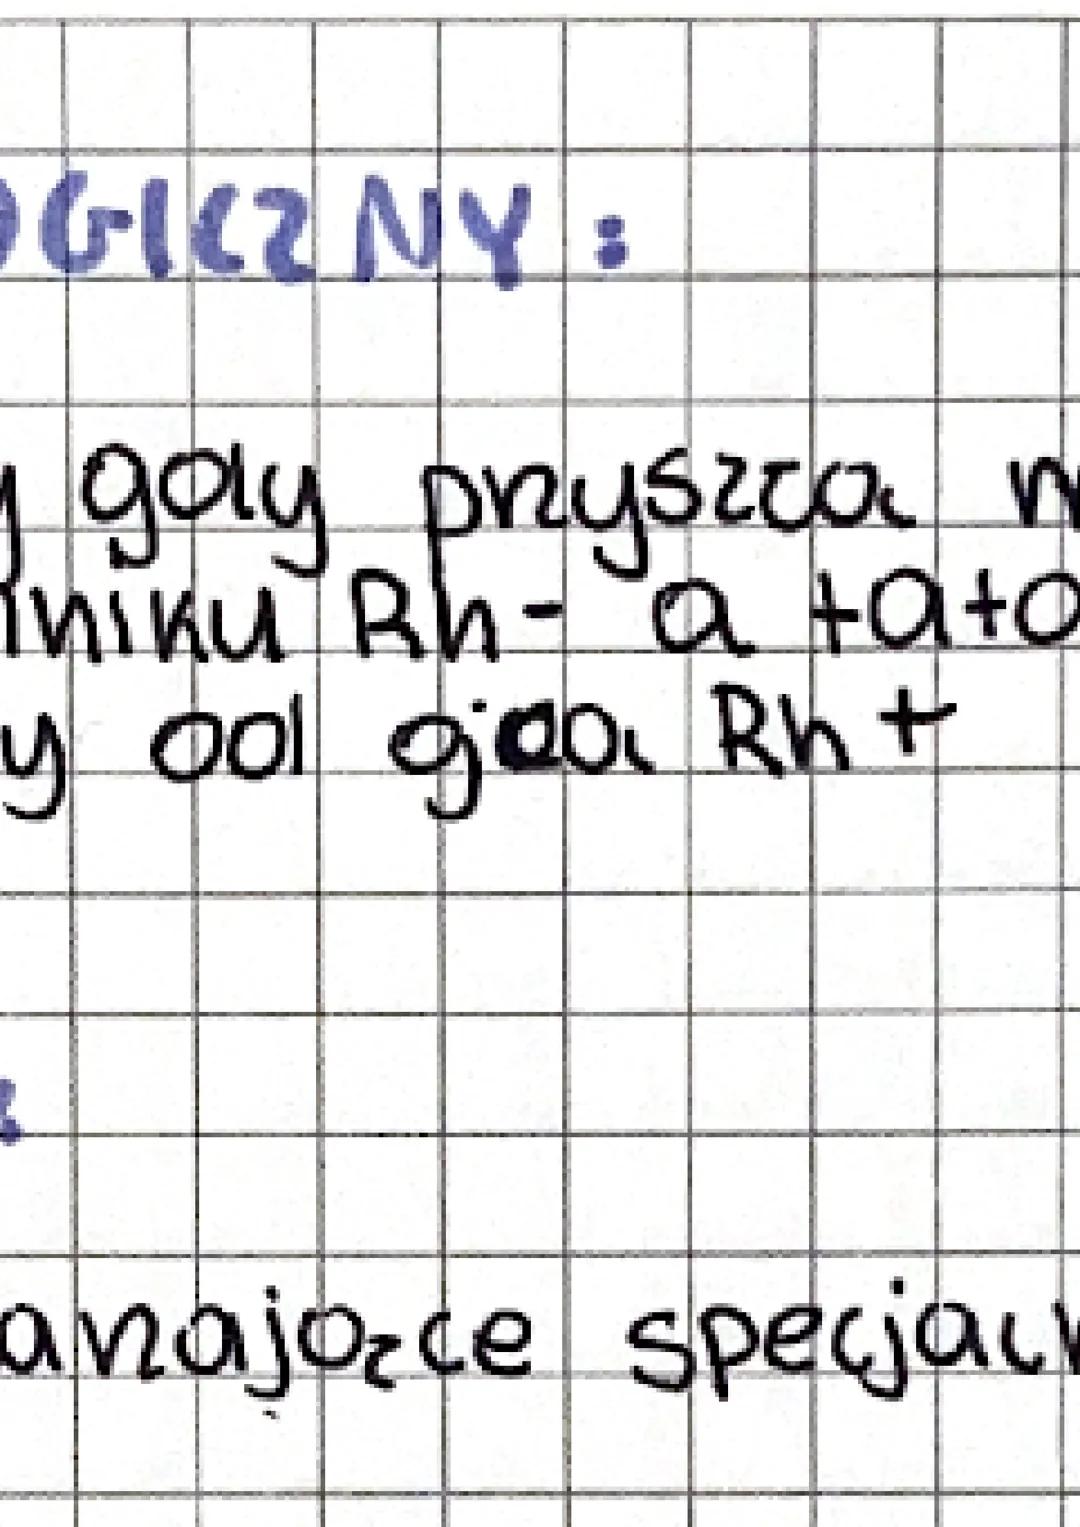 OGICZNY:
y gdy przyszła m
nniku Rh- a tato
y od ojca Rh+
:
arzające specjaln